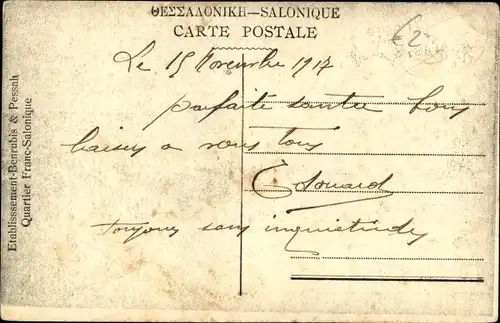 ΘΕΣΣΑΛΟΝΙΚΗ—SALONIQUE
CARTE POSTALE
Le 15 Novembre 1917
parfaite santée bons
baisers a vous tous
Edouard
Toujours sans inquietudes
Etablisssement-Benrubis & Pessah
Quartier Franc-Salonique